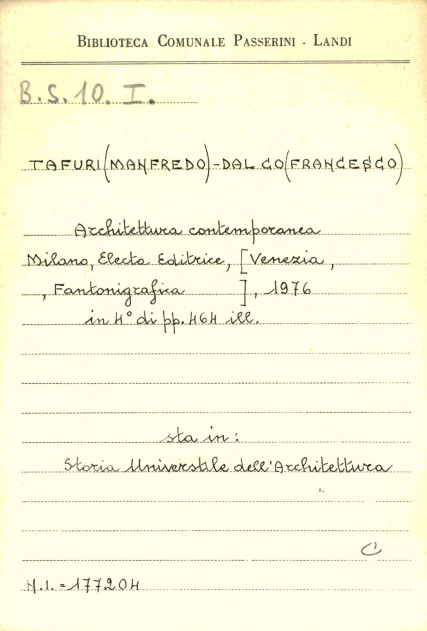 BIBLIOTECA COMUNALE PASSERINI - LANDI
B.S. 10. I.
TAFURI (MANFREDO) - DAL CO (FRANCESCO)
Architettura contemporanea
Milano, Electa Editrice, [Venezia,
, Fantonigrafica ], 1976
in 4° di pp. 464 ill.
sta in:
Storia Universtile dell'Architettura
C
N.I. = 177204